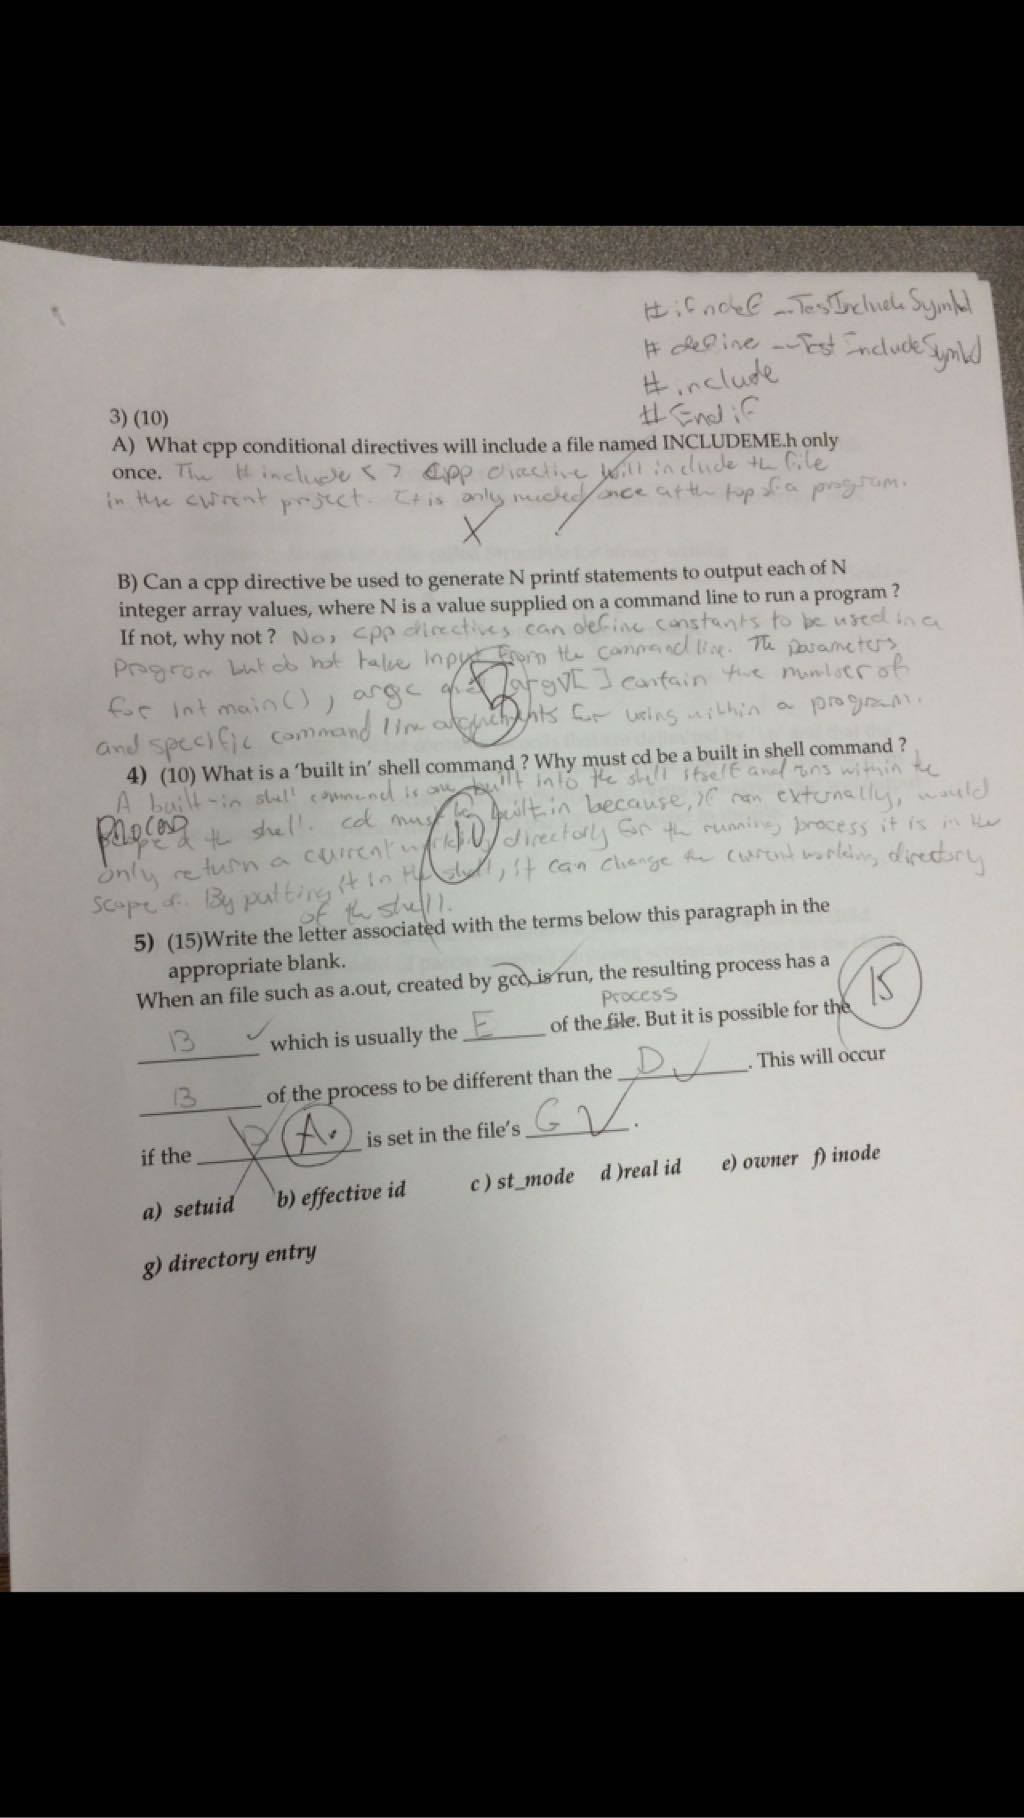 # ifndef __TestIncludeSymbol
# define __TestIncludeSymbol
# include
# Endif
3) (10)
A) What cpp conditional directives will include a file named INCLUDEME.h only
once. The # include < > cpp directive will include the file
in the current project. It is only needed once at the top of a program.
X
B) Can a cpp directive be used to generate N printf statements to output each of N
integer array values, where N is a value supplied on a command line to run a program ?
If not, why not ? No, cpp directives can define constants to be used in a
Program but do not take input from the command line. The parameters
for int main(), argc and argv[] contain the number of
and specific command line arguments for using within a program.
4) (10) What is a 'built in' shell command ? Why must cd be a built in shell command ?
A built-in shell command is one built into the shell itself and runs within the
Process of the shell. cd must be built in because, if ran externally, would
only return a current working directory for the running process it is in the
scope of. By putting it in the shell, it can change the current working directory
of the shell.
10
5) (15)Write the letter associated with the terms below this paragraph in the
appropriate blank.
When an file such as a.out, created by gcc, is run, the resulting process has a
15
process
B which is usually the E of the file. But it is possible for the
B of the process to be different than the D. This will occur
if the D A. is set in the file's G.
a) setuid b) effective id c) st_mode d )real id e) owner f) inode
g) directory entry